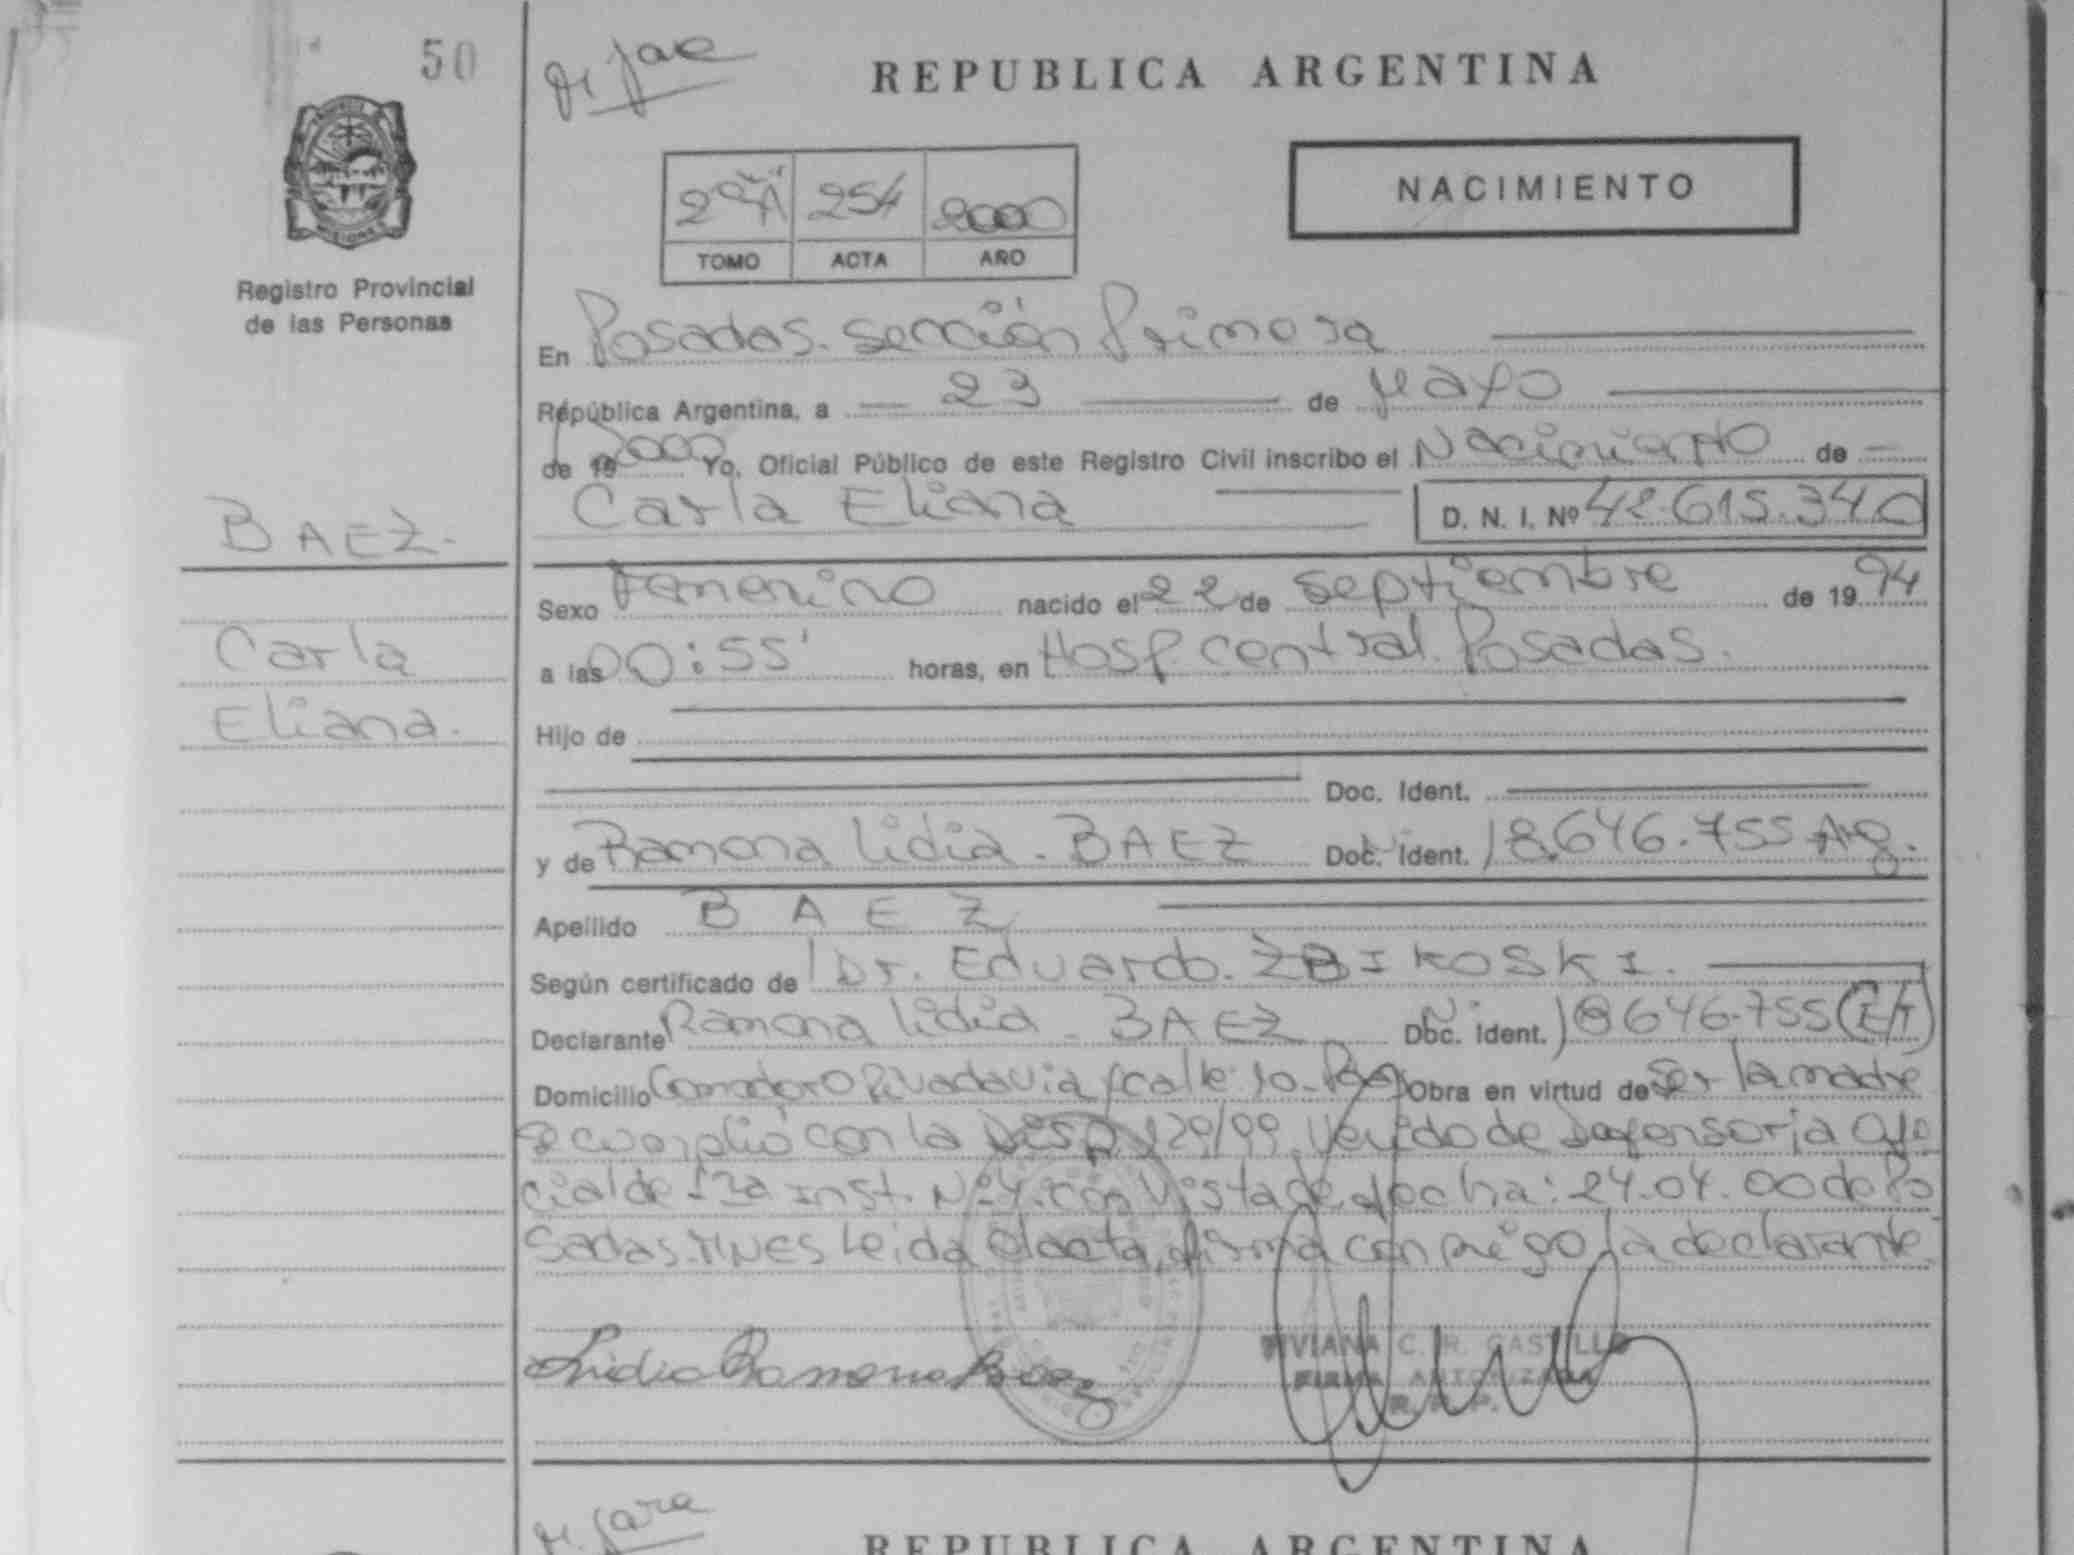 50
REPUBLICA ARGENTINA
NACIMIENTO
254 2000
TOMO ACTA AÑO
MISIONES
Registro Provincial
de las Personas
En Posadas. Sección Primera
República Argentina, a 23 de Mayo
de 19 2000 Yo, Oficial Público de este Registro Civil inscribo el Nacimiento de
Carla Eliana D. N. I. Nº 42.615.340
BAEZ.
Carla
Eliana.
Sexo Femenino nacido el 22 de Septiembre de 19 94
a las 00:55' horas, en Hosp. Central. Posadas.
Hijo de
Doc. Ident.
y de Ramona Lidia. BAEZ Doc. Ident. 18.646.755 Arg.
Apellido BAEZ
Según certificado de Dr. Eduardo. ZBIKOSKI.
Declarante Ramona Lidia. BAEZ Doc. Ident. 18646.755
Domicilio Comodoro Rivadavia calle 10. Obra en virtud de Ser la madre
Se cumplió con la Disp. 129/99, Venido de Defensoría Ofi
cial de 1ra Inst. Nº4. con Vista de fecha: 24.04.00 de Po
sadas. MNES Leida el acta, firma conmigo la declarante.
Lidia Ramona Baez
VIVIANA C. R. CASTILLO
FIRMA AUTORIZADA
R. P. P.
REPUBLICA ARGENTINA